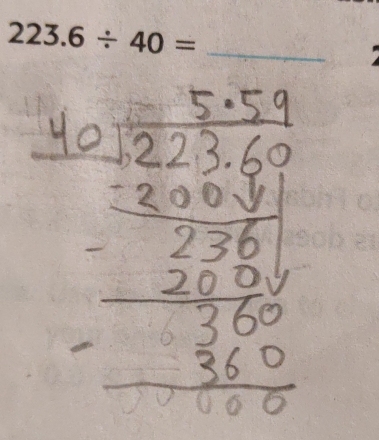 223.6 ÷ 40 =
5.59
40 223.60
- 200
236
- 200
360
- 360
000